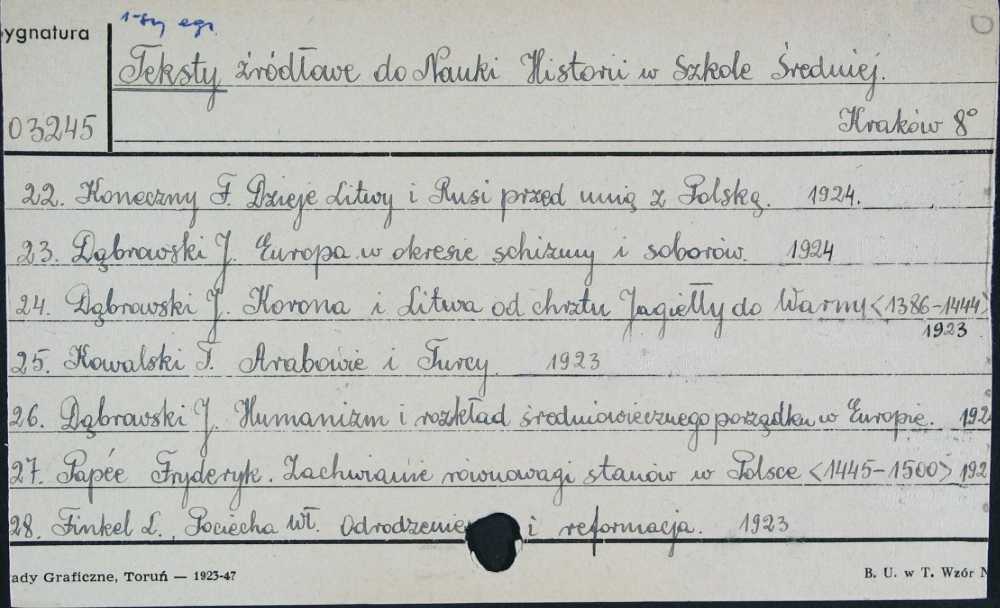 1-szy egz.
ygnatura
Teksty źródłowe do Nauki Historii w Szkole Średniej.
03245
Kraków 8°
22. Koneczny F. Dzieje Litwy i Rusi przed unią z Polską. 1924.
23. Dąbrowski J. Europa w okresie schizmy i soborów. 1924
24. Dąbrowski J. Korona i Litwa od chrztu Jagiełły do Warny <1386-1444>
1923
25. Kowalski T. Arabowie i Turcy 1923
26. Dąbrowski J. Humanizm i rozkład średniowiecznego porządku w Europie. 192
27. Papée Fryderyk. Zachwianie równowagi stanów w Polsce <1445-1500> 192
28. Finkel L., Pociecha Wł. Odrodzenie i reformacja. 1923
ady Graficzne, Toruń — 1923-47
B. U. w T. Wzór N